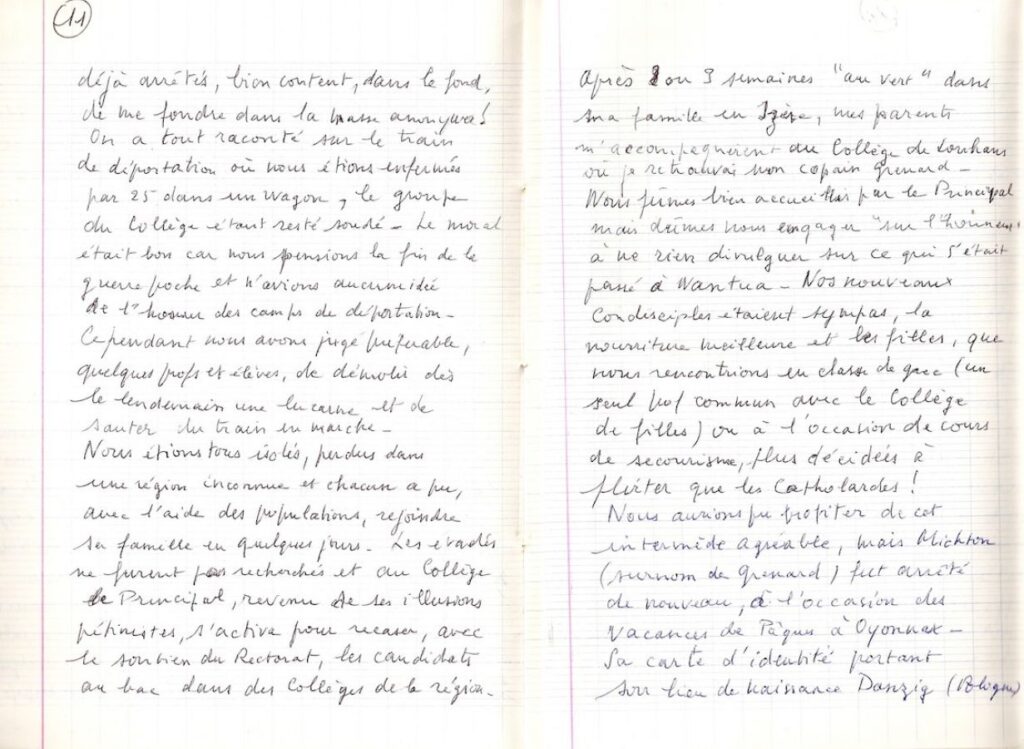 11
déjà arrêtés, bien content, dans le fond,
de me fondre dans la masse anonyme!
On a tout raconté sur le train
de déportation où nous étions enfermés
par 25 dans un wagon, le groupe
du Collège étant resté soudé - Le moral
était bon car nous pensions la fin de la
guerre proche et n'avions aucune idée
de l'horreur des camps de déportation -
Cependant nous avons jugé préférable,
quelques profs et élèves, de démolir dès
le lendemain une lucarne et de
sauter du train en marche -
Nous étions tous isolés, perdus dans
une région inconnue et chacun a pu,
avec l'aide des populations, rejoindre
sa famille en quelques jours - Les évadés
ne furent pas recherchés et au Collège
le Principal, revenu de ses illusions
pétinistes, s'active pour recaser, avec
le soutien du Rectorat, les candidats
au bac dans des Collèges de la région -
Après 2 ou 3 semaines "au vert" dans
ma famille en Isère, mes parents
m'accompagnèrent au Collège de Louhans
où je retrouvai mon copain Grenard -
Nous fûmes bien accueillis par le Principal
mais dûmes nous engager "sur l'honneur"
à ne rien divulguer sur ce qui s'était
passé à Nantua - Nos nouveaux
condisciples étaient sympas, la
nourriture meilleure et les filles, que
nous rencontrions en classe de grec (un
seul prof commun avec le Collège
de filles) ou à l'occasion de cours
de secourisme, plus décidées à
flirter que les Catholardes !
Nous aurions pu profiter de cet
intermède agréable, mais Michton
(surnom de Grenard) fut arrêté
de nouveau, à l'occasion des
vacances de Pâques à Oyonnax -
Sa carte d'identité portant
son lieu de naissance Danzig (Pologne)